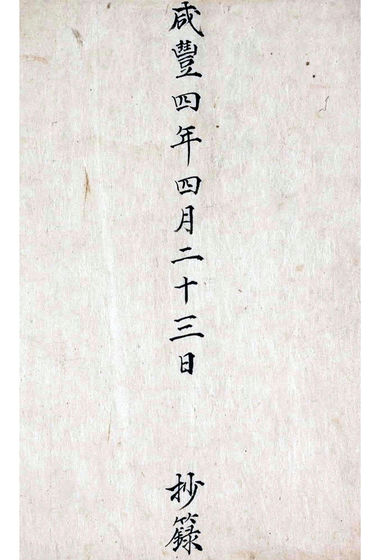 咸豐四年四月二十三日　抄籙